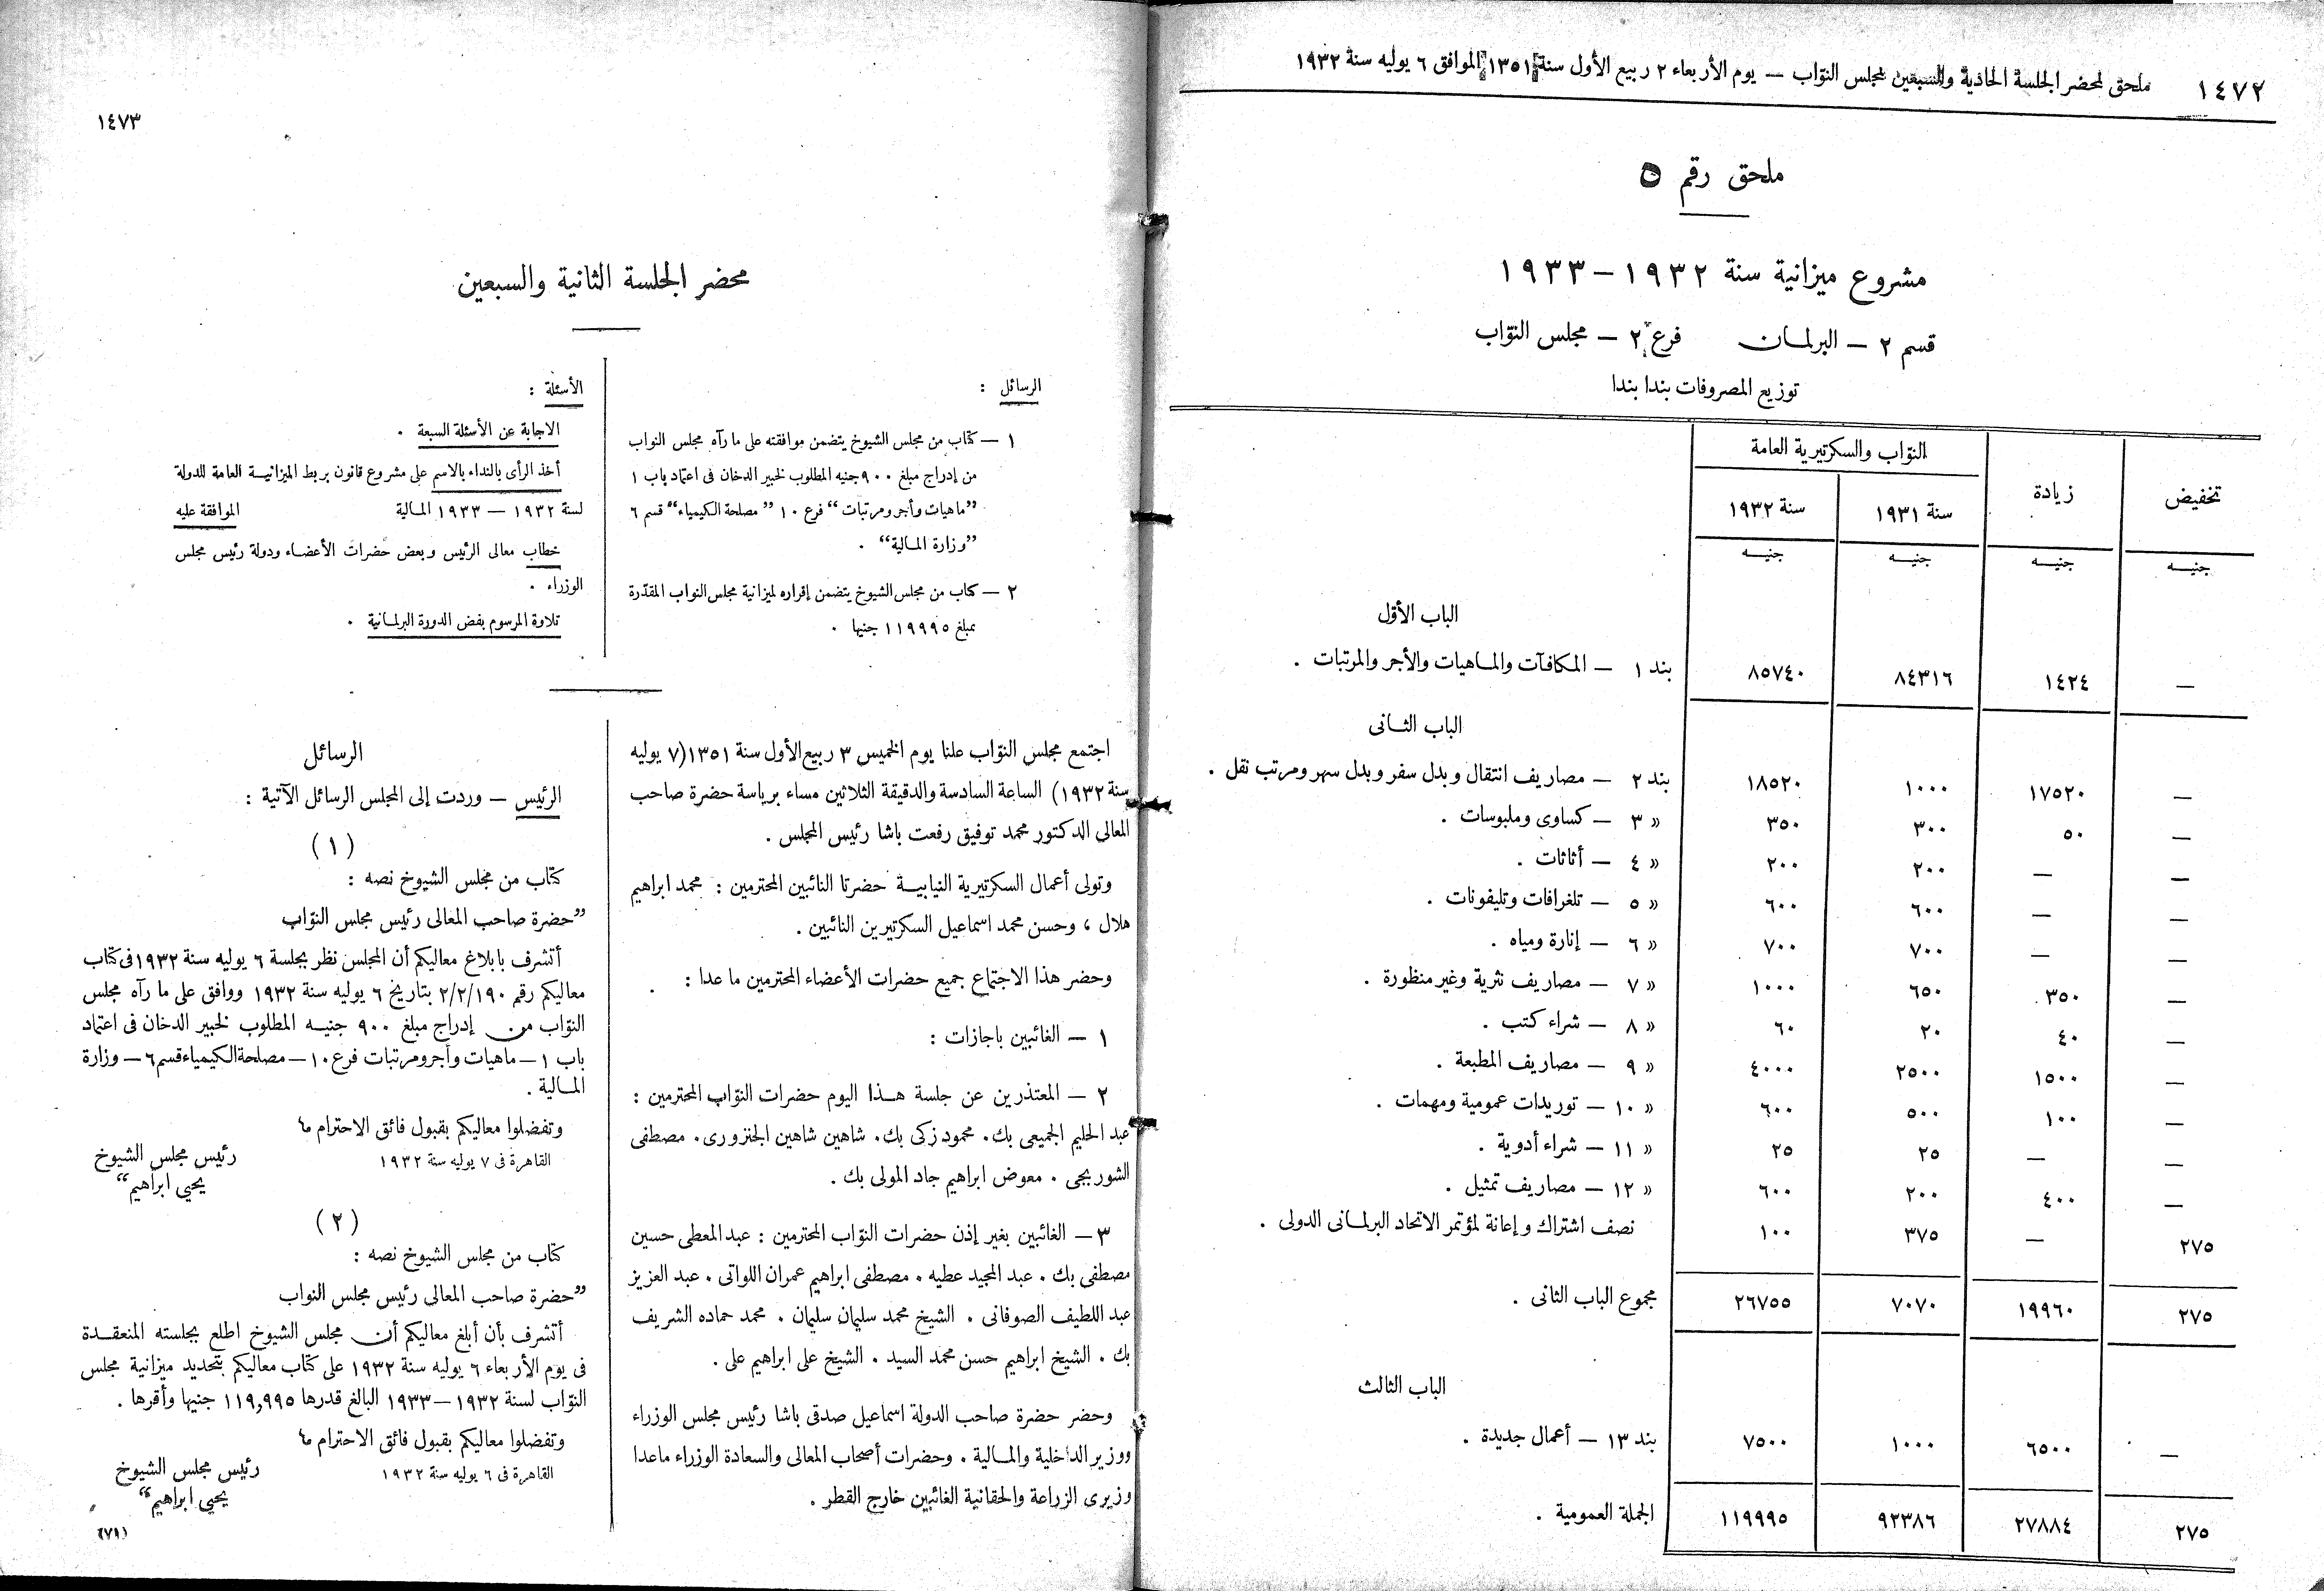 ١٤٧٢ ملحق لمحضر الجلسة الحادية والسبعين لمجلس النوّاب — يوم الأربعاء ٢ ربيع الأول سنة ١٣٥١ الموافق ٦ يوليه سنة ١٩٣٢
ملحق رقم ٥
مشروع ميزانية سنة ١٩٣٢ — ١٩٣٣
قسم ٢ — البرلمان فرع ٢ — مجلس النوّاب
توزيع المصروفات بندا بندا
النوّاب والسكرتيرية العامة
تخفيض زيادة سنة ١٩٣١ سنة ١٩٣٢
جنيه جنيه جنيه جنيه
الباب الأوّل
— ١٤٢٤ ٨٤٣١٦ ٨٥٧٤٠ بند ١ — المكافآت والماهيات والأجر والمرتبات .
الباب الثانى
— ١٧٥٢٠ ١٠٠٠ ١٨٥٢٠ بند ٢ — مصاريف انتقال وبدل سفر وبدل سهر ومرتب نقل .
— ٥٠ ٣٠٠ ٣٥٠ » ٣ — كساوى وملبوسات .
— — ٢٠٠ ٢٠٠ » ٤ — أثاثات .
— — ٦٠٠ ٦٠٠ » ٥ — تلغرافات وتليفونات .
— — ٧٠٠ ٧٠٠ » ٦ — إنارة ومياه .
— ٣٥٠ ٦٥٠ ١٠٠٠ » ٧ — مصاريف نثرية وغير منظورة .
— ٤٠ ٢٠ ٦٠ » ٨ — شراء كتب .
— ١٥٠٠ ٢٥٠٠ ٤٠٠٠ » ٩ — مصاريف المطبعة .
— ١٠٠ ٥٠٠ ٦٠٠ » ١٠ — توريدات عمومية ومهمات .
— — ٢٥ ٢٥ » ١١ — شراء أدوية .
— ٤٠٠ ٢٠٠ ٦٠٠ » ١٢ — مصاريف تمثيل .
٢٧٥ — ٣٧٥ ١٠٠ نصف اشتراك وإعانة لمؤتمر الاتحاد البرلمانى الدولى .
٢٧٥ ١٩٩٦٠ ٧٠٧٠ ٢٦٧٥٥ مجموع الباب الثانى .
الباب الثالث
— ٦٥٠٠ ١٠٠٠ ٧٥٠٠ بند ١٣ — أعمال جديدة .
٢٧٥ ٢٧٨٨٤ ٩٢٣٨٦ ١١٩٩٩٥ الجملة العمومية .
١٤٧٣
محضر الجلسة الثانية والسبعين
الرسائل :
١ — كتاب من مجلس الشيوخ يتضمن موافقته على ما رآه مجلس النواب
من إدراج مبلغ ٩٠٠ جنيه المطلوب لخبير الدخان فى اعتماد باب ١
”ماهيات وأجر ومرتبات“ فرع ١٠ ”مصلحة الكيمياء“ قسم ٦
”وزارة المالية“ .
٢ — كتاب من مجلس الشيوخ يتضمن إقراره لميزانية مجلس النواب المقدّرة
بمبلغ ١١٩٩٩٥ جنيها .
الأسئلة :
الاجابة عن الأسئلة السبعة .
أخذ الرأى بالنداء بالاسم على مشروع قانون بربط الميزانية العامة للدولة
لسنة ١٩٣٢ — ١٩٣٣ المالية الموافقة عليه
خطاب معالى الرئيس وبعض حضرات الأعضاء ودولة رئيس مجلس
الوزراء .
تلاوة المرسوم بفض الدورة البرلمانية .
اجتمع مجلس النوّاب علنا يوم الخميس ٣ ربيع الأول سنة ١٣٥١ (٧ يوليه
سنة ١٩٣٢) الساعة السادسة والدقيقة الثلاثين مساء برياسة حضرة صاحب
المعالى الدكتور محمد توفيق رفعت باشا رئيس المجلس .
وتولى أعمال السكرتيرية النيابية حضرتا النائبين المحترمين : محمد ابراهيم
هلال ، وحسن محمد اسماعيل السكرتيرين النائبين .
وحضر هذا الاجتماع جميع حضرات الأعضاء المحترمين ما عدا :
١ — الغائبين باجازات :
٢ — المعتذرين عن جلسة هذا اليوم حضرات النوّاب المحترمين :
عبد الحليم الجميعى بك . محمود زكى بك . شاهين شاهين الجنزورى . مصطفى
الشوربجى . معوض ابراهيم جاد المولى بك .
٣ — الغائبين بغير إذن حضرات النوّاب المحترمين : عبد المعطى حسين
مصطفى بك . عبد المجيد عطيه . مصطفى ابراهيم عمران اللواتى . عبد العزيز
عبد اللطيف الصوفانى . الشيخ محمد سليمان سليمان . محمد حماده الشريف
بك . الشيخ ابراهيم حسن محمد السيد . الشيخ على ابراهيم على .
وحضر حضرة صاحب الدولة اسماعيل صدقى باشا رئيس مجلس الوزراء
ووزير الداخلية والمالية . وحضرات أصحاب المعالى والسعادة الوزراء ماعدا
وزيرى الزراعة والحقانية الغائبين خارج القطر .
الرسائل
الرئيس — وردت إلى المجلس الرسائل الآتية :
(١)
كتاب من مجلس الشيوخ نصه :
”حضرة صاحب المعالى رئيس مجلس النوّاب
أتشرف بابلاغ معاليكم أن المجلس نظر بجلسة ٦ يوليه سنة ١٩٣٢ فى كتاب
معاليكم رقم ٢/٢/١٩٠ بتاريخ ٦ يوليه سنة ١٩٣٢ ووافق على ما رآه مجلس
النوّاب من إدراج مبلغ ٩٠٠ جنيه المطلوب لخبير الدخان فى اعتماد
باب ١ — ماهيات وأجر ومرتبات فرع ١٠ — مصلحة الكيمياء قسم ٦ — وزارة
المالية .
وتفضلوا معاليكم بقبول فائق الاحترام ما
القاهرة فى ٧ يوليه سنة ١٩٣٢ رئيس مجلس الشيوخ
يحيى ابراهيم“
(٢)
كتاب من مجلس الشيوخ نصه :
”حضرة صاحب المعالى رئيس مجلس النواب
أتشرف بأن أبلغ معاليكم أن مجلس الشيوخ اطلع بجلسته المنعقدة
فى يوم الأربعاء ٦ يوليه سنة ١٩٣٢ على كتاب معاليكم بتحديد ميزانية مجلس
النوّاب لسنة ١٩٣٢ — ١٩٣٣ البالغ قدرها ١١٩,٩٩٥ جنيها وأقرها .
وتفضلوا معاليكم بقبول فائق الاحترام ما
القاهرة فى ٦ يوليه سنة ١٩٣٢ رئيس مجلس الشيوخ
يحيى ابراهيم“